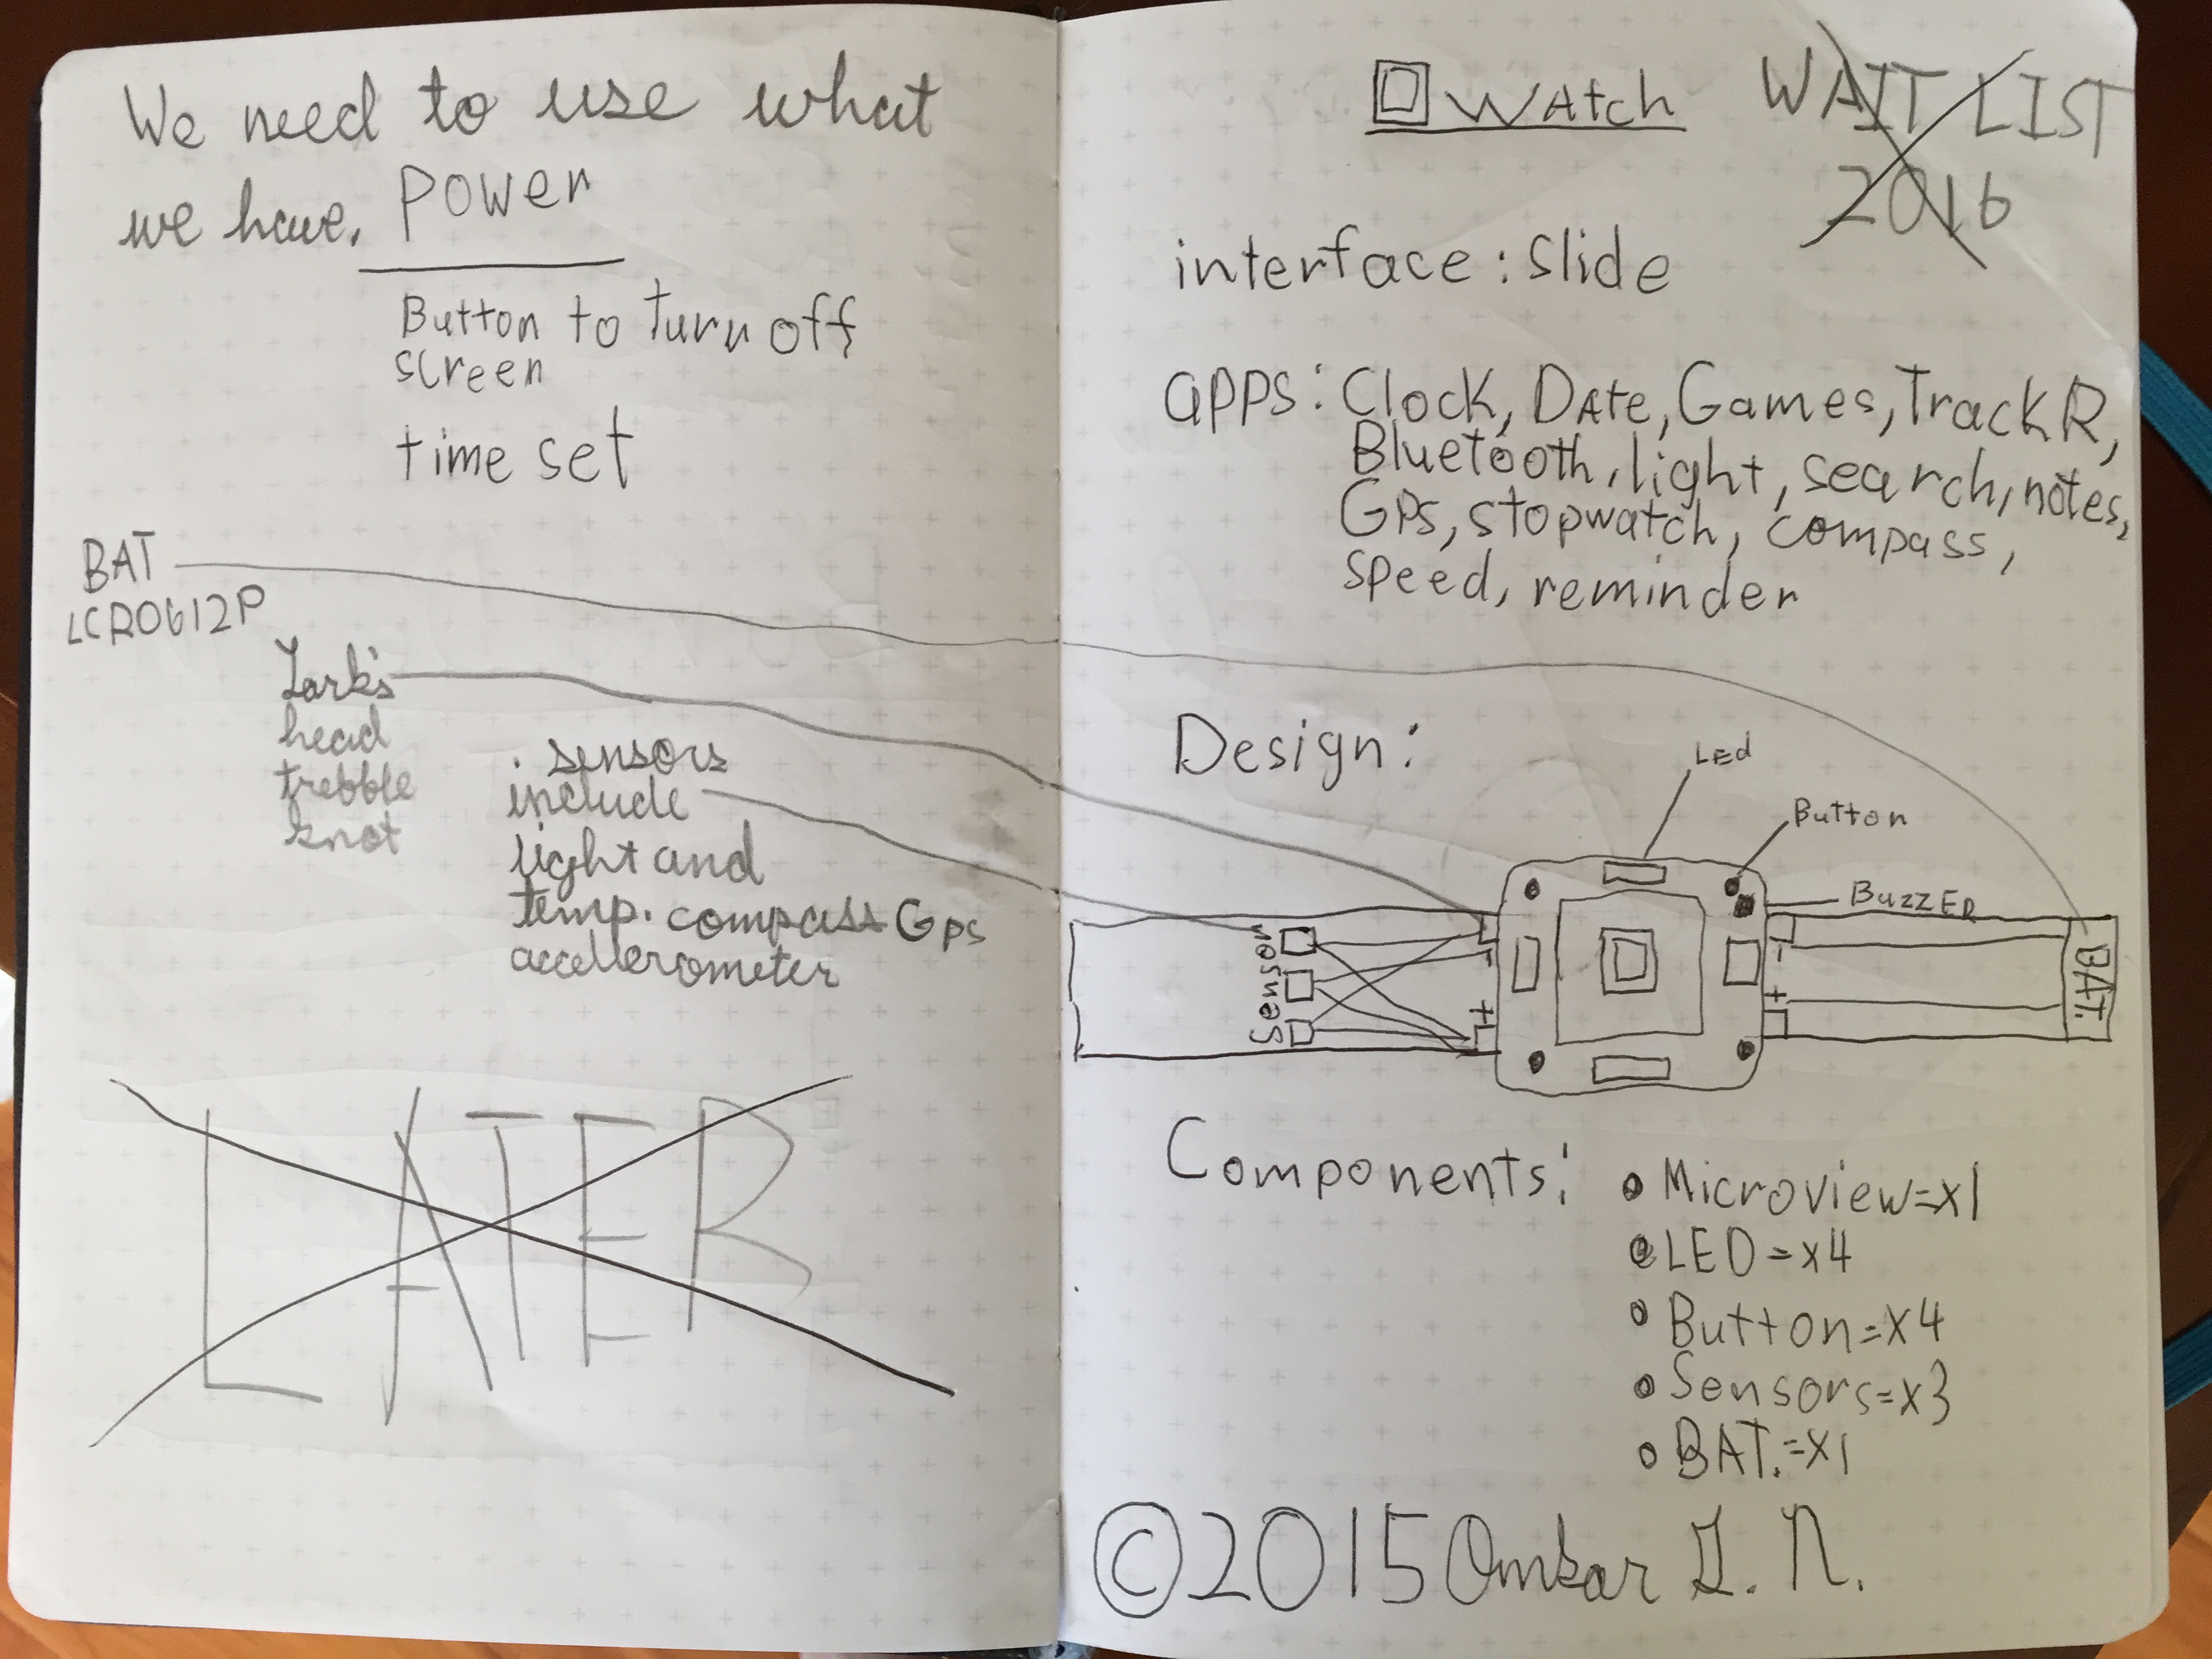 We need to use what
we have.
Power
Button to turn off
screen
time set
BAT
LCR0612P
Lark's
head
trebble
knot
. sensors
include
light and
temp. compass GPS
accellerometer
LATER
Watch
WAIT LIST
2016
interface: slide
apps: Clock, DAte, Games, TrackR,
Bluetooth, light, search, notes,
GPS, stopwatch, compass,
speed, reminder
Design:
LEd
Button
BuzzER
Sensor
-
+
-
+
BAT.
Components:
• Microview=x1
• LED=x4
• Button=x4
• Sensors=x3
• BAT.=x1
©2015 Omkar I. N.